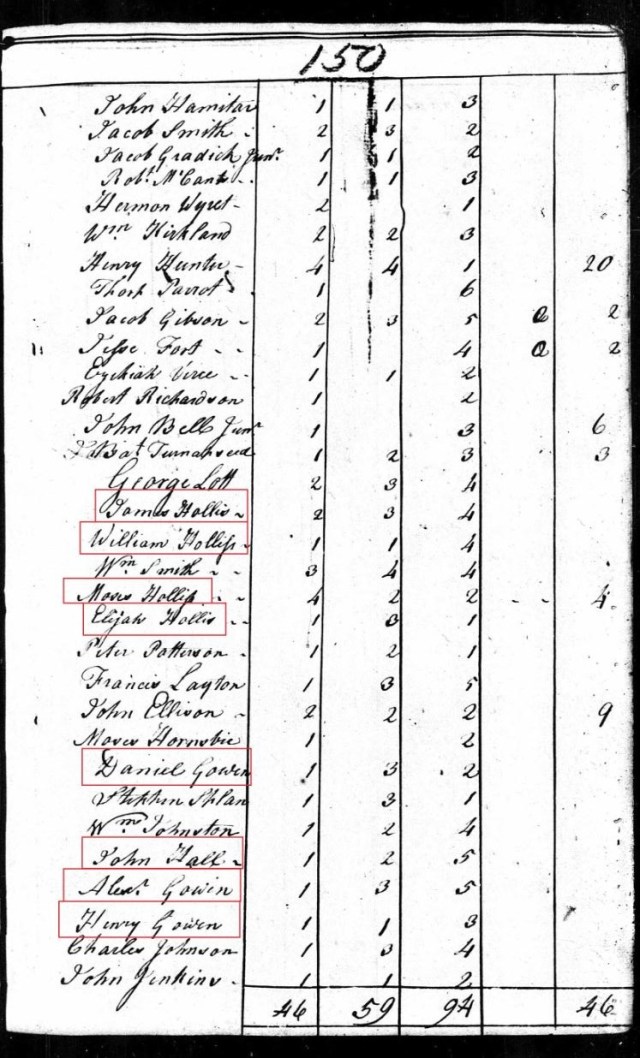 150
John Hamitar 1 1 3
Jacob Smith - 2 3 2
Jacob Gradick Junr. 1 1 2
Robt. McCants - 1 1 3
Hermon Wyret - 2 1
Wm Kirkland 2 2 3
Henry Hunter - 4 4 1 20
Thos Parrot 1 6
Jacob Gibson - 2 3 5 2
Jesse Fort - - 1 4 2
Ezekiah - - 1 1 2
Robert Richardson 1 2
John Bell Junr 1 3 6
1 2 3 3
George Lott 2 3 4
James Hollis - 2 3 4
William Holliss - 1 1 4
Wm Smith - - 3 4 4
Moses Hollis - - 4 2 2 - - 4
Elijah Hollis - - 1 3 1
Peter Patterson - 1 2 1
Francis Layton 1 3 5
John Ellison - 2 2 2 9
Moses Hornsbie 1 2
Daniel Gowen 1 3 2
Stephen 1 3 1
Wm Johnston 1 2 4
John Hall - 1 2 5
Alexr. Gowen 1 3 5
Henry Gowen 1 1 3
Charles Johnson 1 3 4
John Jenkins - 1 1 2
46 59 94 46